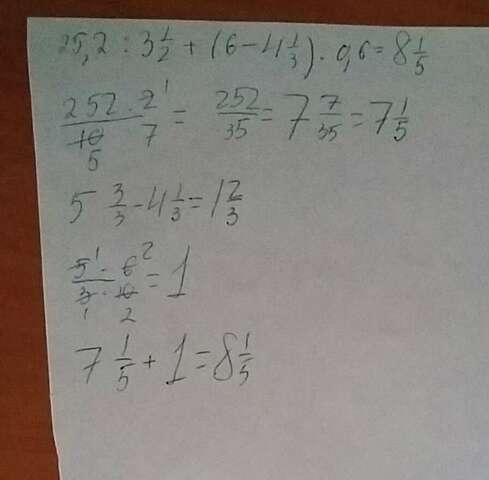 25,2 : 3 1/2 + (6 - 4 1/3) · 0,6 = 8 1/5
252 · 2 1 / 10 5 · 7 = 252/35 = 7 7/35 = 7 1/5
5 3/3 - 4 1/3 = 1 2/3
5 1 · 6 2 / 3 1 · 10 2 = 1
7 1/5 + 1 = 8 1/5